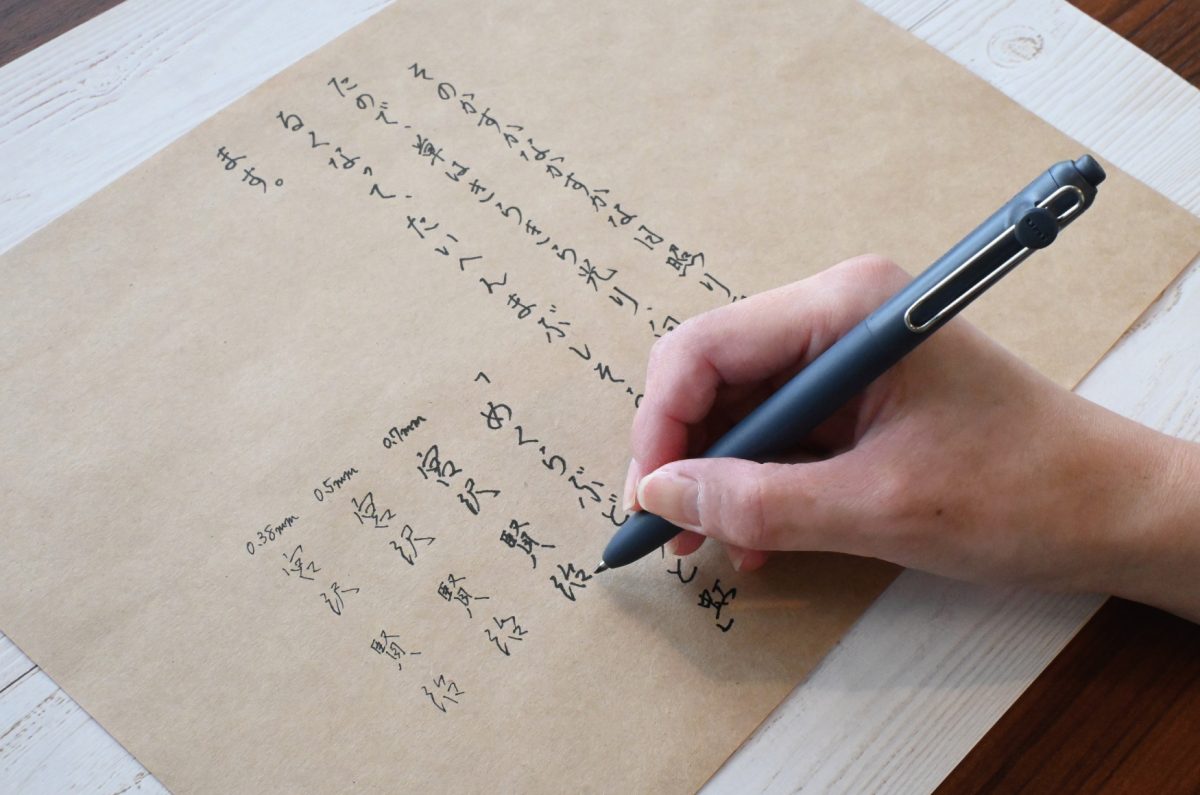 そのかすかなかすかな日照り
たので、草はきらきら光り、向
るくなって、たいへんまぶしそう
ます。
「めくらぶどうと虹」
0.7mm 宮沢 賢治
0.5mm 宮沢 賢治
0.38mm 宮沢 賢治